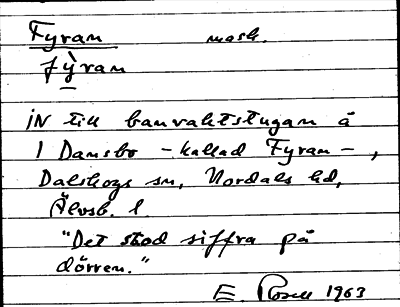 Fyran mask.
fỳran
IN till banvaktstugan å
1 Dansbo - kallad Fyran -,
Dalskogs sn, Nordals hd,
Älvsb. l.
"Det stod siffra på
dörren."
E. Rosell 1963